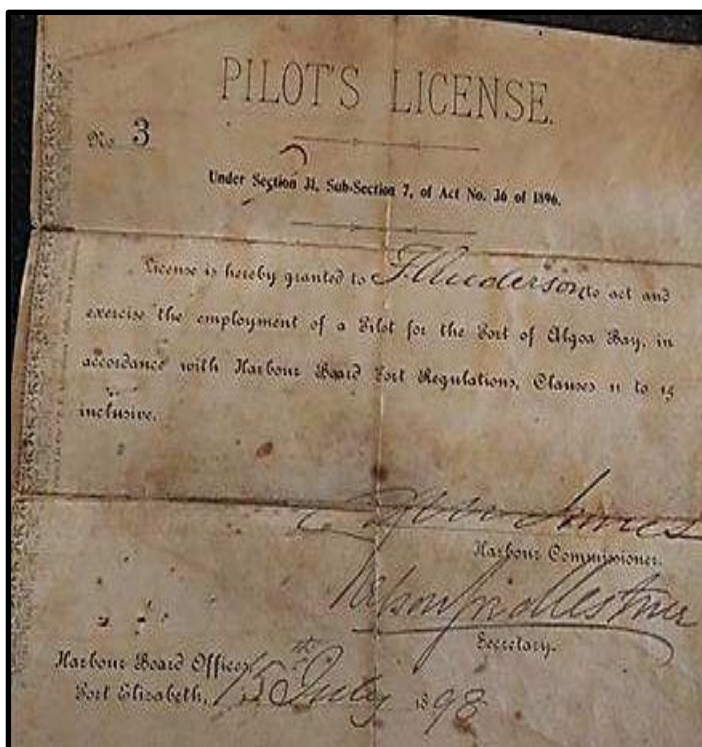 PILOT'S LICENSE.
No. 3
Under Section 31, Sub-Section 7, of Act No. 36 of 1896.
License is hereby granted to F Anderson to act and
exercise the employment of a Pilot for the Port of Algoa Bay, in
accordance with Harbour Board Port Regulations, Clauses 11 to 15
inclusive.
Jones
Harbour Commissioner.
Secretary.
Harbour Board Offices,
Port Elizabeth, 15th July 1898